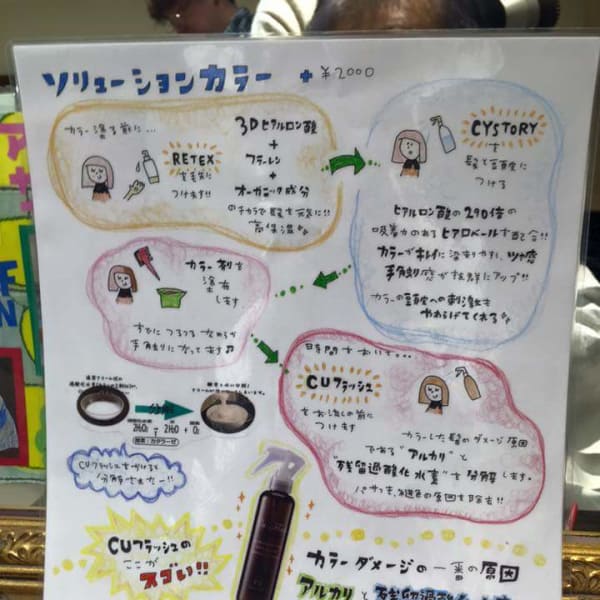 ソリューションカラー + ¥2000
カラー塗る前に...
RETEX
を毛先に
つけます!!
3Dヒアルロン酸
+
フラーレン
+
オーガニック成分
のチカラで髪を元気に!!
高保湿
CYSTORY
を
髪と頭皮に
つける
ヒアルロン酸の290倍の
吸着力のあるヒアロベールを配合!!
カラーがキレイに染まりやすく、ツヤ感
手触り感が抜群にアップ!!
カラーの頭皮への刺激も
やわらげてくれる
カラー剤を
塗布
します
すでにつるつるなめらか
手触りになってます♫
時間をおいて...
CUフラッシュ
をお流しの前に
つけます
カラーした髪のダメージ原因
である"アルカリ"と
"残留過酸化水素"を分解します。
パサつき、褪色の原因を除去!!
分解
2H₂O₂ → 2H₂O + O₂
酵素:カタラーゼ
CUフラッシュをつけると
分解されたー!!
CUフラッシュの
ここが
スゴい!!
カラーダメージの一番の原因
アルカリと残留過酸化水素